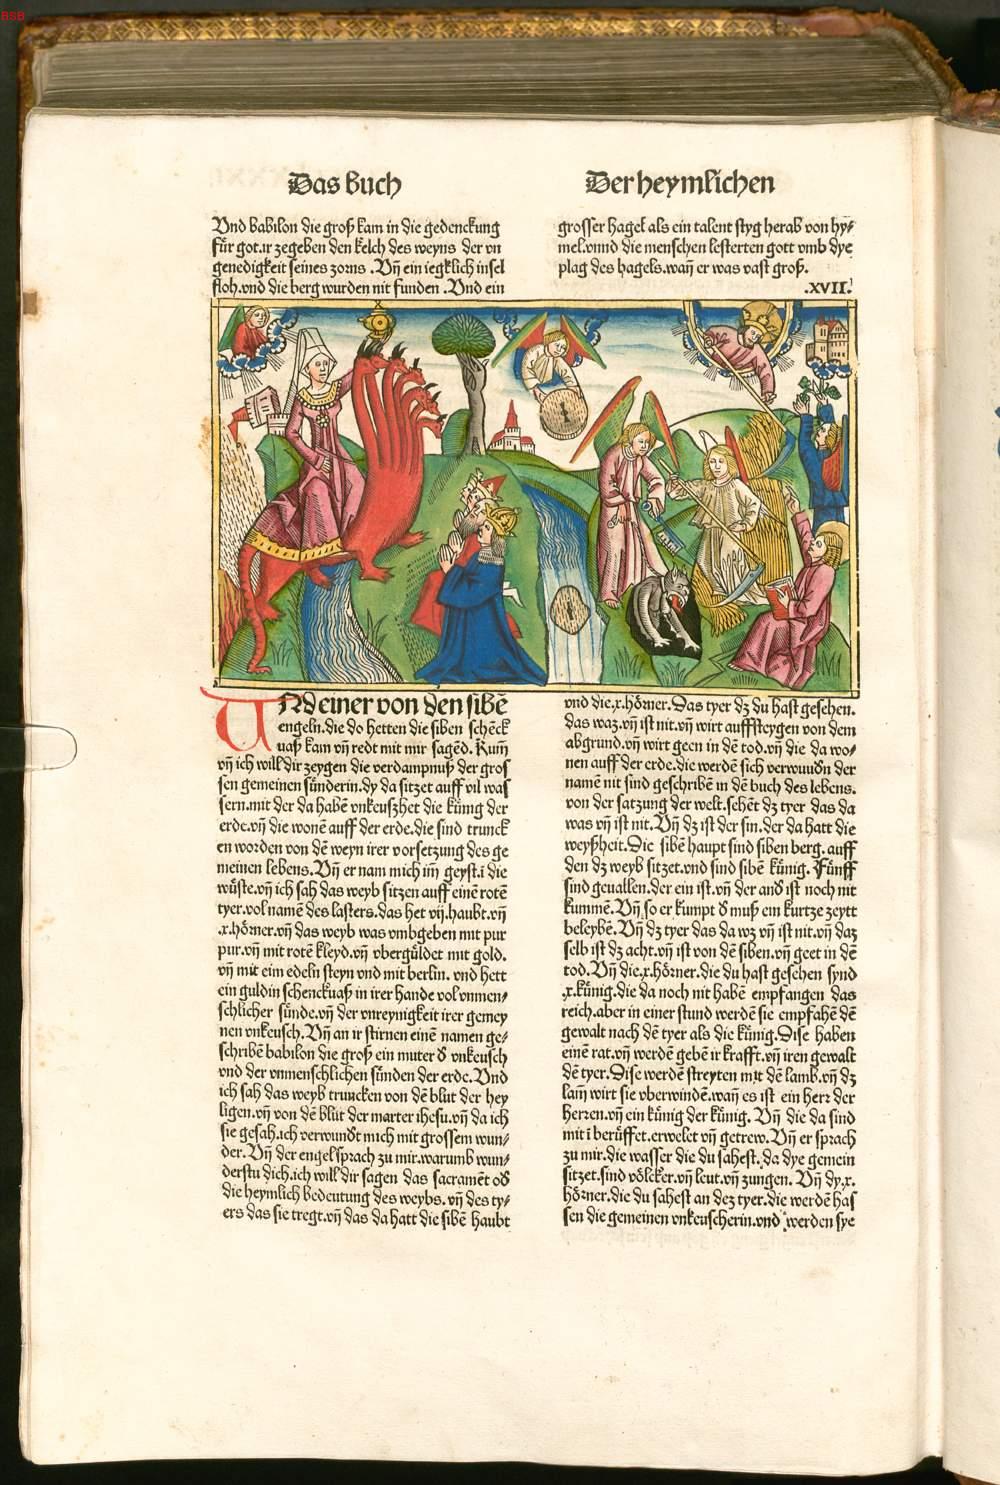 BSB
Das Buch
Der heymlichen
Vnd babilon die groß kam in die gedenckung
für got.ir zegeben den kelch des weyns der vn
genedigkeit seines zorns .Vñ ein iegklich insel
floh.vnd die berg wurden nit funden .Vnd ein
grosser hagel als ein talent styg herab von hy⸗
mel.vnnd die menschen lesterten gott vmb dye
plag des hagels.wañ er was vast groß.
.XVII.
VNd einer von den sibē
engeln.die do hetten die siben schēck
uaß kam vñ redt mit mir sagēd. Kum̄
vñ ich will dir zeygen die verdampnuß der gros
sen gemeinen sünderin.dy da sitzet auff vil was
sern.mit der da habē vnkeuszhet die künig der
erde.vñ die wonē auff der erde.die sind trunck
en worden von dē weyn irer vorsetzung des ge
meinen lebens.Vñ er nam mich im̄ geyst.ī die
wüste.vñ ich sah das weyb sitzen auff einē rotē
tyer.vol namē des lasters.das het vij.haubt.vñ
.x.hörner.vñ das weyb was vmbgeben mit pur
pur.vñ mit rotē kleyd.vñ vbergüldet mit gold.
vñ mit eim edeln steyn vnd mit berlin. vnd hett
ein guldin schenckuaß in irer hande vol vnmen⸗
schlicher sünde.vñ der vnreynigkeit irer gemey
nen vnkeusch.Vñ an ir stirnen einē namen ge⸗
schribē babilon die groß ein muter đ vnkeusch
vnd der vnmenschlichen sünden der erde.Vnd
ich sah das weyb truncken von dē blut der hey
ligen.vñ von dē blüt der marter ihesu.vñ da ich
sie gesah.ich verwunđt mich mit grossem wun⸗
der.Vñ der engel sprach zu mir.warumb wun⸗
derstu dich.ich will dir sagen das sacramēt ođ
die heymlich bedeutung des weybs. vñ des ty⸗
ers das sie tregt.vñ das da hatt die sibē haubt
vnd die.x.hörner.Das tyer dz du hast gesehen.
das waz.vñ ist nit.vñ wirt auffsteygen von dem
abgrund.vñ wirt geen in dē tod.vñ die da wo⸗
nen auff der erde.die werdē sich verwunđn der
namē nit sind geschribē in dē buch des lebens.
von der satzung der welt.sehēt dz tyer das da
was vñ ist nit.Vñ dz ist der sin.der da hatt die
weyßheit.Die sibē haupt sind siben berg. auff
den dz weyb sitzet.vnd sind sibē künig. Fünff
sind geuallen.der ein ist.vñ der anđ ist noch nit
kummē.Vñ so er kumpt đ muß ein kurtze zeytt
beleybē.Vñ dz tyer das da wz vñ ist nit.vñ daz
selb ist dz acht.vñ ist von dē siben.vñ geet in dē
tod.Vñ die.x.hörner.die du hast gesehen synd
.x.künig.die da noch nit habē empfangen das
reich.aber in einer stund werdē sie empfahē dē
gewalt nach dē tyer als die künig.Dise haben
einē rat.vñ werdē gebē ir krafft.vñ iren gewalt
dē tyer.Dise werdē streyten mit dē lamb.vñ dz
lam̄ wirt sie vberwindē.wañ es ist ein herr der
herren.vñ ein künig der künig. Vñ die da sind
mit ī berüffet.erwelet vñ getrew.Vñ er sprach
zu mir.die wasser die du sahest. da dye gemein
sitzet.sind völcker.vñ leut.vñ zungen. Vñ dy.x.
hörner.die du sahest an dez tyer.die werdē has
sen die gemeinen vnkeuscherin.vnd werden sye